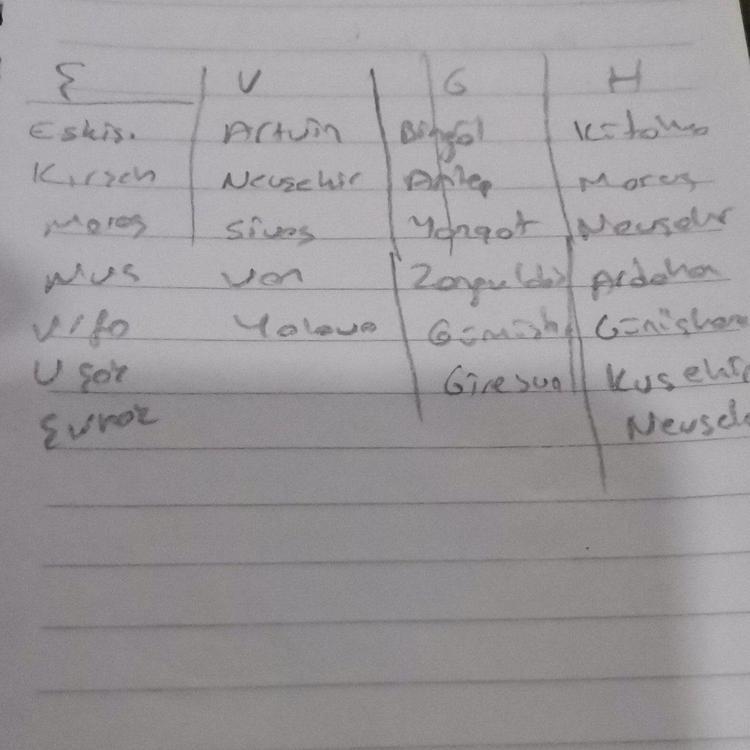 Ş V G H
Eskiş. Artvin Bingöl Kütahya
Kırşeh Nevşehir Antep Maraş
Maraş Sivas Yozgat Nevşehr
Muş Van Zonguldak Ardahan
Yalova Gümüşh Gümüşhane
Uşak Giresun Kırşehir
Nevşeh